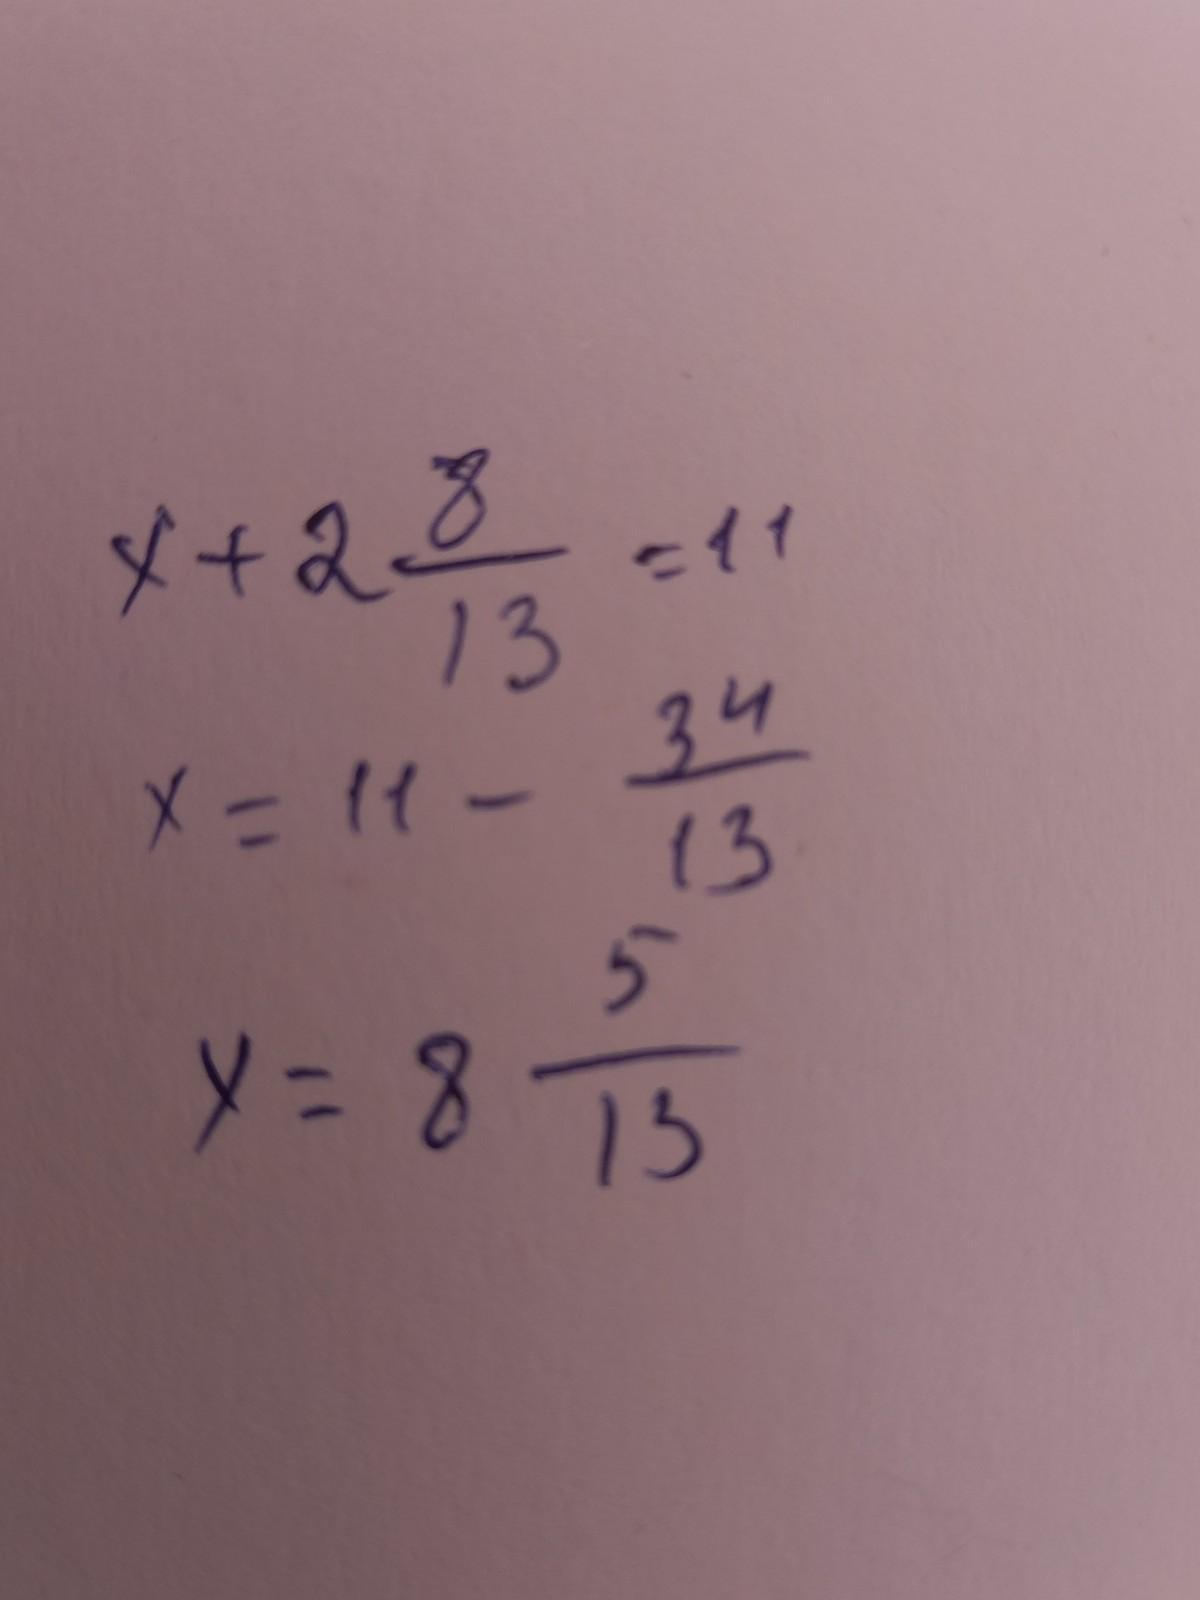 x + 2 8/13 = 11
x = 11 - 34/13
x = 8 5/13